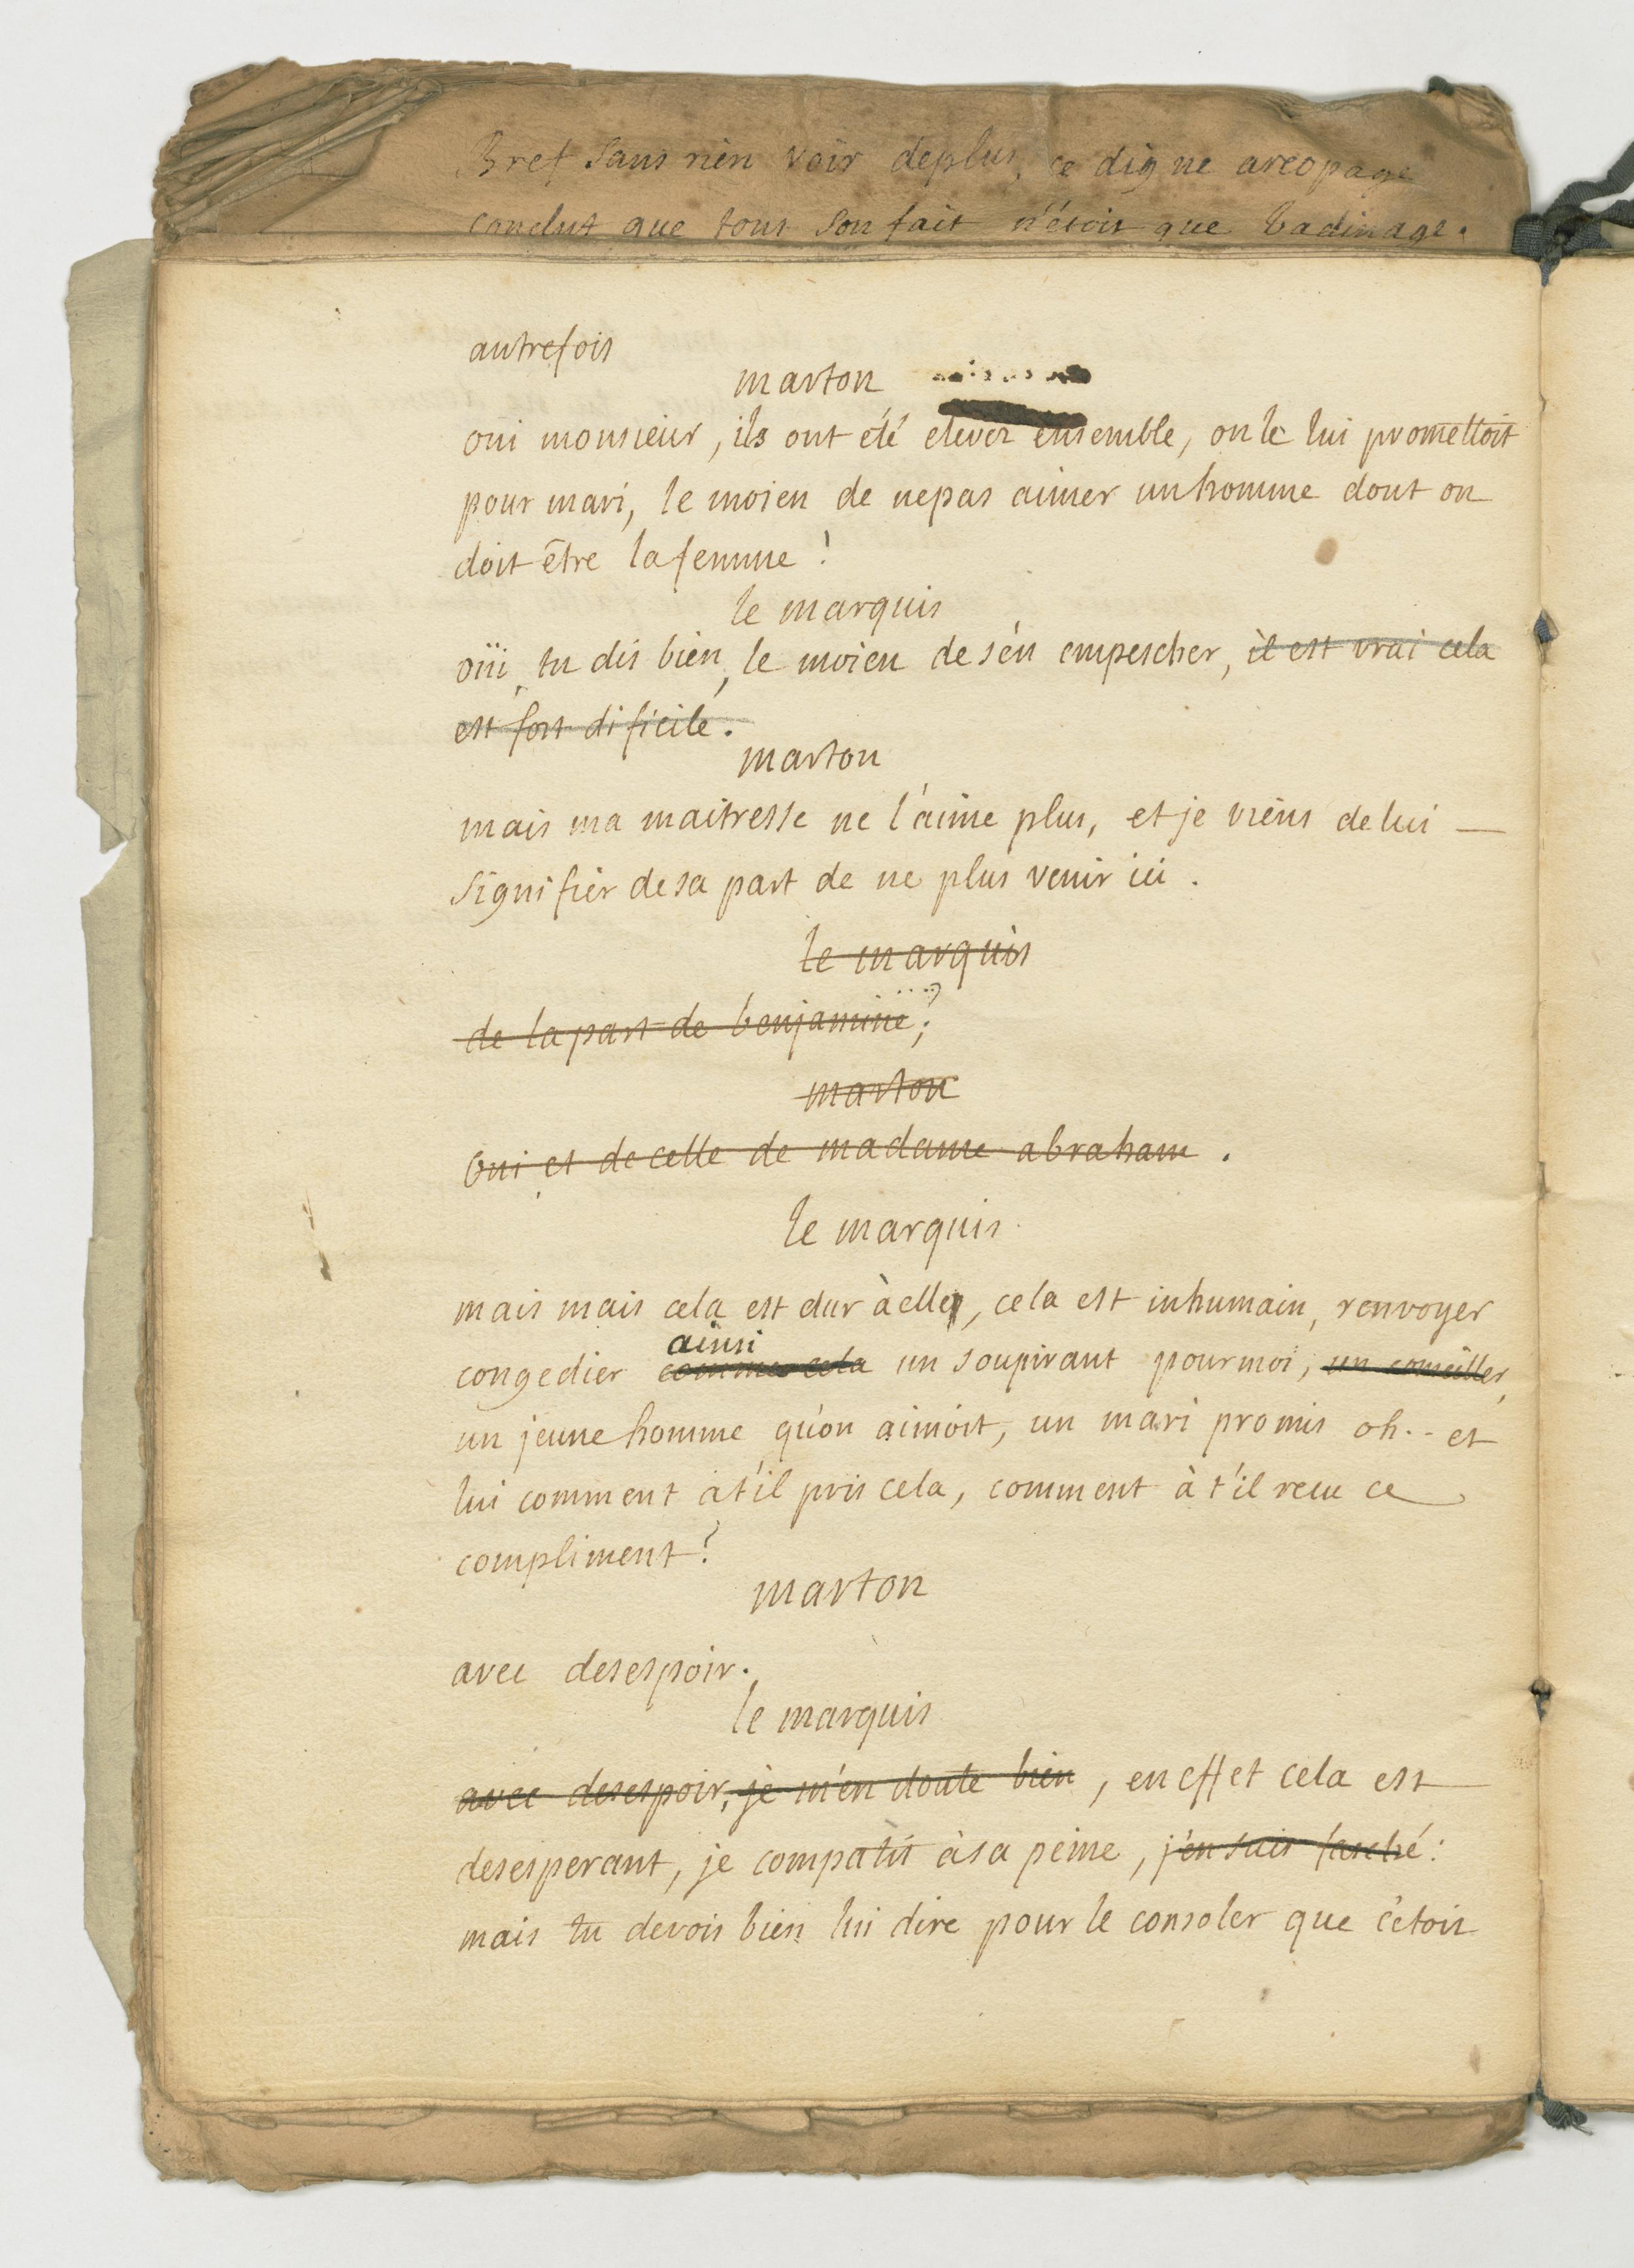 Bref sans rien voir deplus, ce digne areopage
conclut que tout son fait n'étoit que badinage.
autrefois
marton
oui monsieur, ils ont été elevez ensemble, on le lui promettoit
pour mari, le moien de nepas aimer unhomme dont on
doit être lafemme!
le marquis
oüi, tu dis bien, le moien de s'én empescher, il est vrai cela
est fort dificile.
marton
mais ma maitresse ne l'aime plus, et je viens de lui —
signifier desa part de ne plus venir ici.
le marquis
de lapart de benjamine;
marton
Oui et decelle de madame abraham.
le marquis
mais mais cela est dur à elle, cela est inhumain, renvoyer
ainsi
congedier comme cela un soupirant pourmoi, un conseiller,
un jeunehomme qu'on aimoit, un mari promis oh.. et
lui comment at'il pris cela, comment à t'il recu ce
compliment?
marton
avec desespoir.
le marquis
avec desespoir, je m'en doute bien, en effet cela est
desesperant, je compatit àsa peine, j'en suis fasché:
mais tu devois bien lui dire pour le consoler que c'étoit